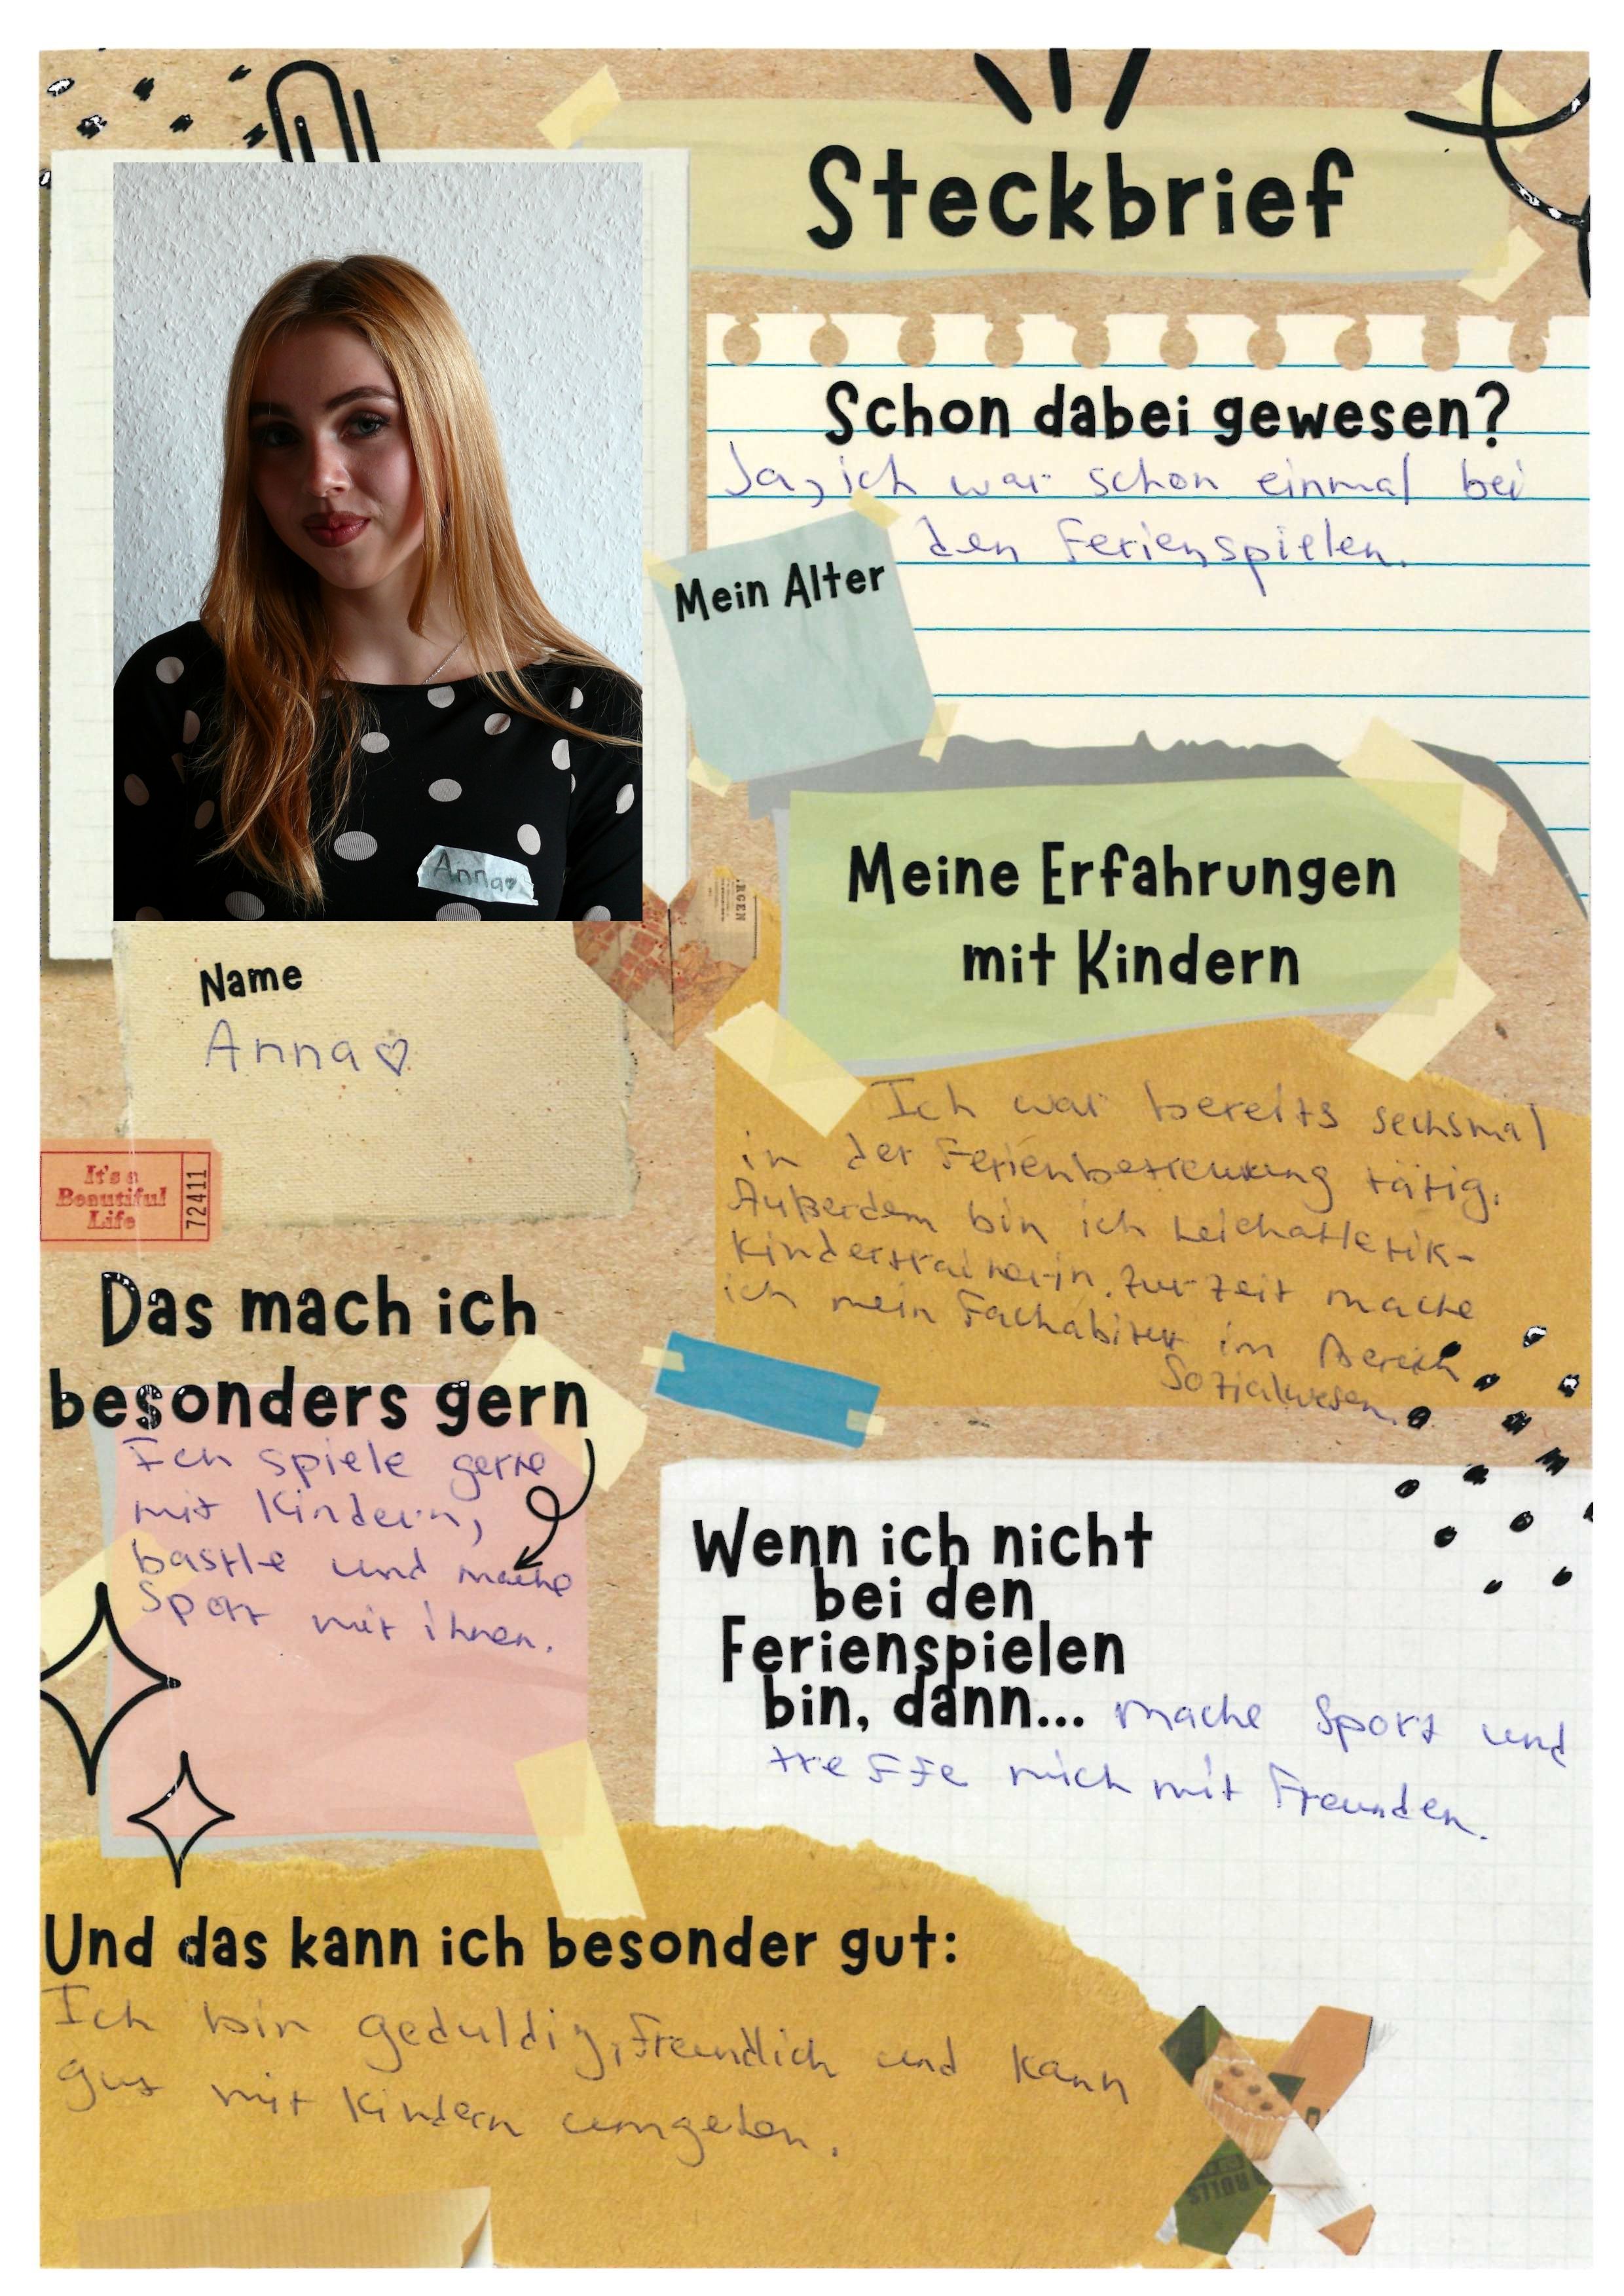 Steckbrief
Schon dabei gewesen?
Ja, ich war schon einmal bei
den Ferienspielen.
Mein Alter
Anna♡
Name
Anna ♡
Meine Erfahrungen
mit Kindern
Ich war bereits sechsmal
in der Ferienbetreuung tätig.
Außerdem bin ich Leichatletik-
Kindertrainerin. Zur Zeit mache
ich mein Fachabitur im Bereich
Sozialwesen.
It's a
Beautiful
Life
72411
Das mach ich
besonders gern
Ich spiele gerne
mit Kindern,
bastle und mache
Sport mit ihnen.
Wenn ich nicht
bei den
Ferienspielen
bin, dann... mache Sport und
treffe mich mit Freunden.
Und das kann ich besonder gut:
Ich bin geduldig, freundlich und kann
gut mit Kindern umgehen.
ROLLS